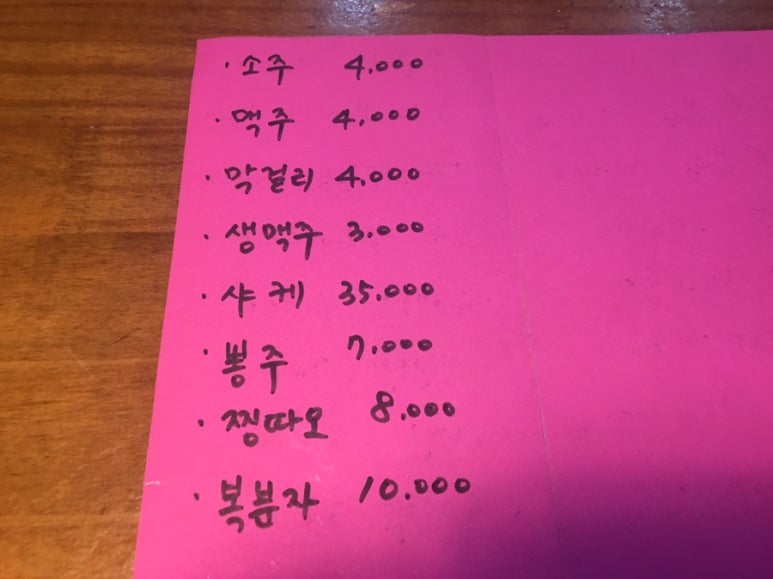 · 소주 4.000
· 맥주 4.000
· 막걸리 4.000
· 생맥주 3.000
· 샤케 35.000
· 뽕주 7.000
· 찡따오 8.000
· 복분자 10.000